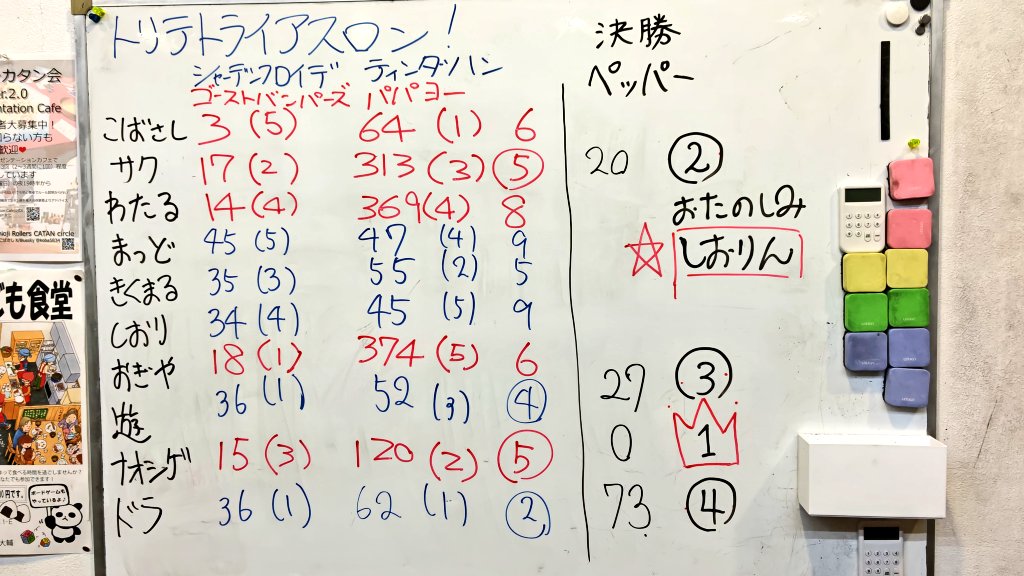 トリテトライアスロン!
シャーデンフロイデ ティンダハン
ゴーストバンパーズ パパヨー
こばさし 3 (5) 64 (1) 6
サク 17 (2) 313 (3) 5
わたる 14 (4) 369 (4) 8
まっど 45 (5) 47 (4) 9
きくまる 35 (3) 55 (2) 5
しおり 34 (4) 45 (5) 9
おぎや 18 (1) 374 (5) 6
遊 36 (1) 52 (3) 4
ナオシゲ 15 (3) 120 (2) 5
ドラ 36 (1) 62 (1) 2
決勝
ペッパー
20 2
おたのしみ
しおりん
27 3
0 1
73 4
カタン会
er.2.0
ntation Cafe
者大募集中!
らない方も
歓迎❤
noji Rollers CATAN circle
ども食堂
ボードゲームも
やっているよ♪
大輔